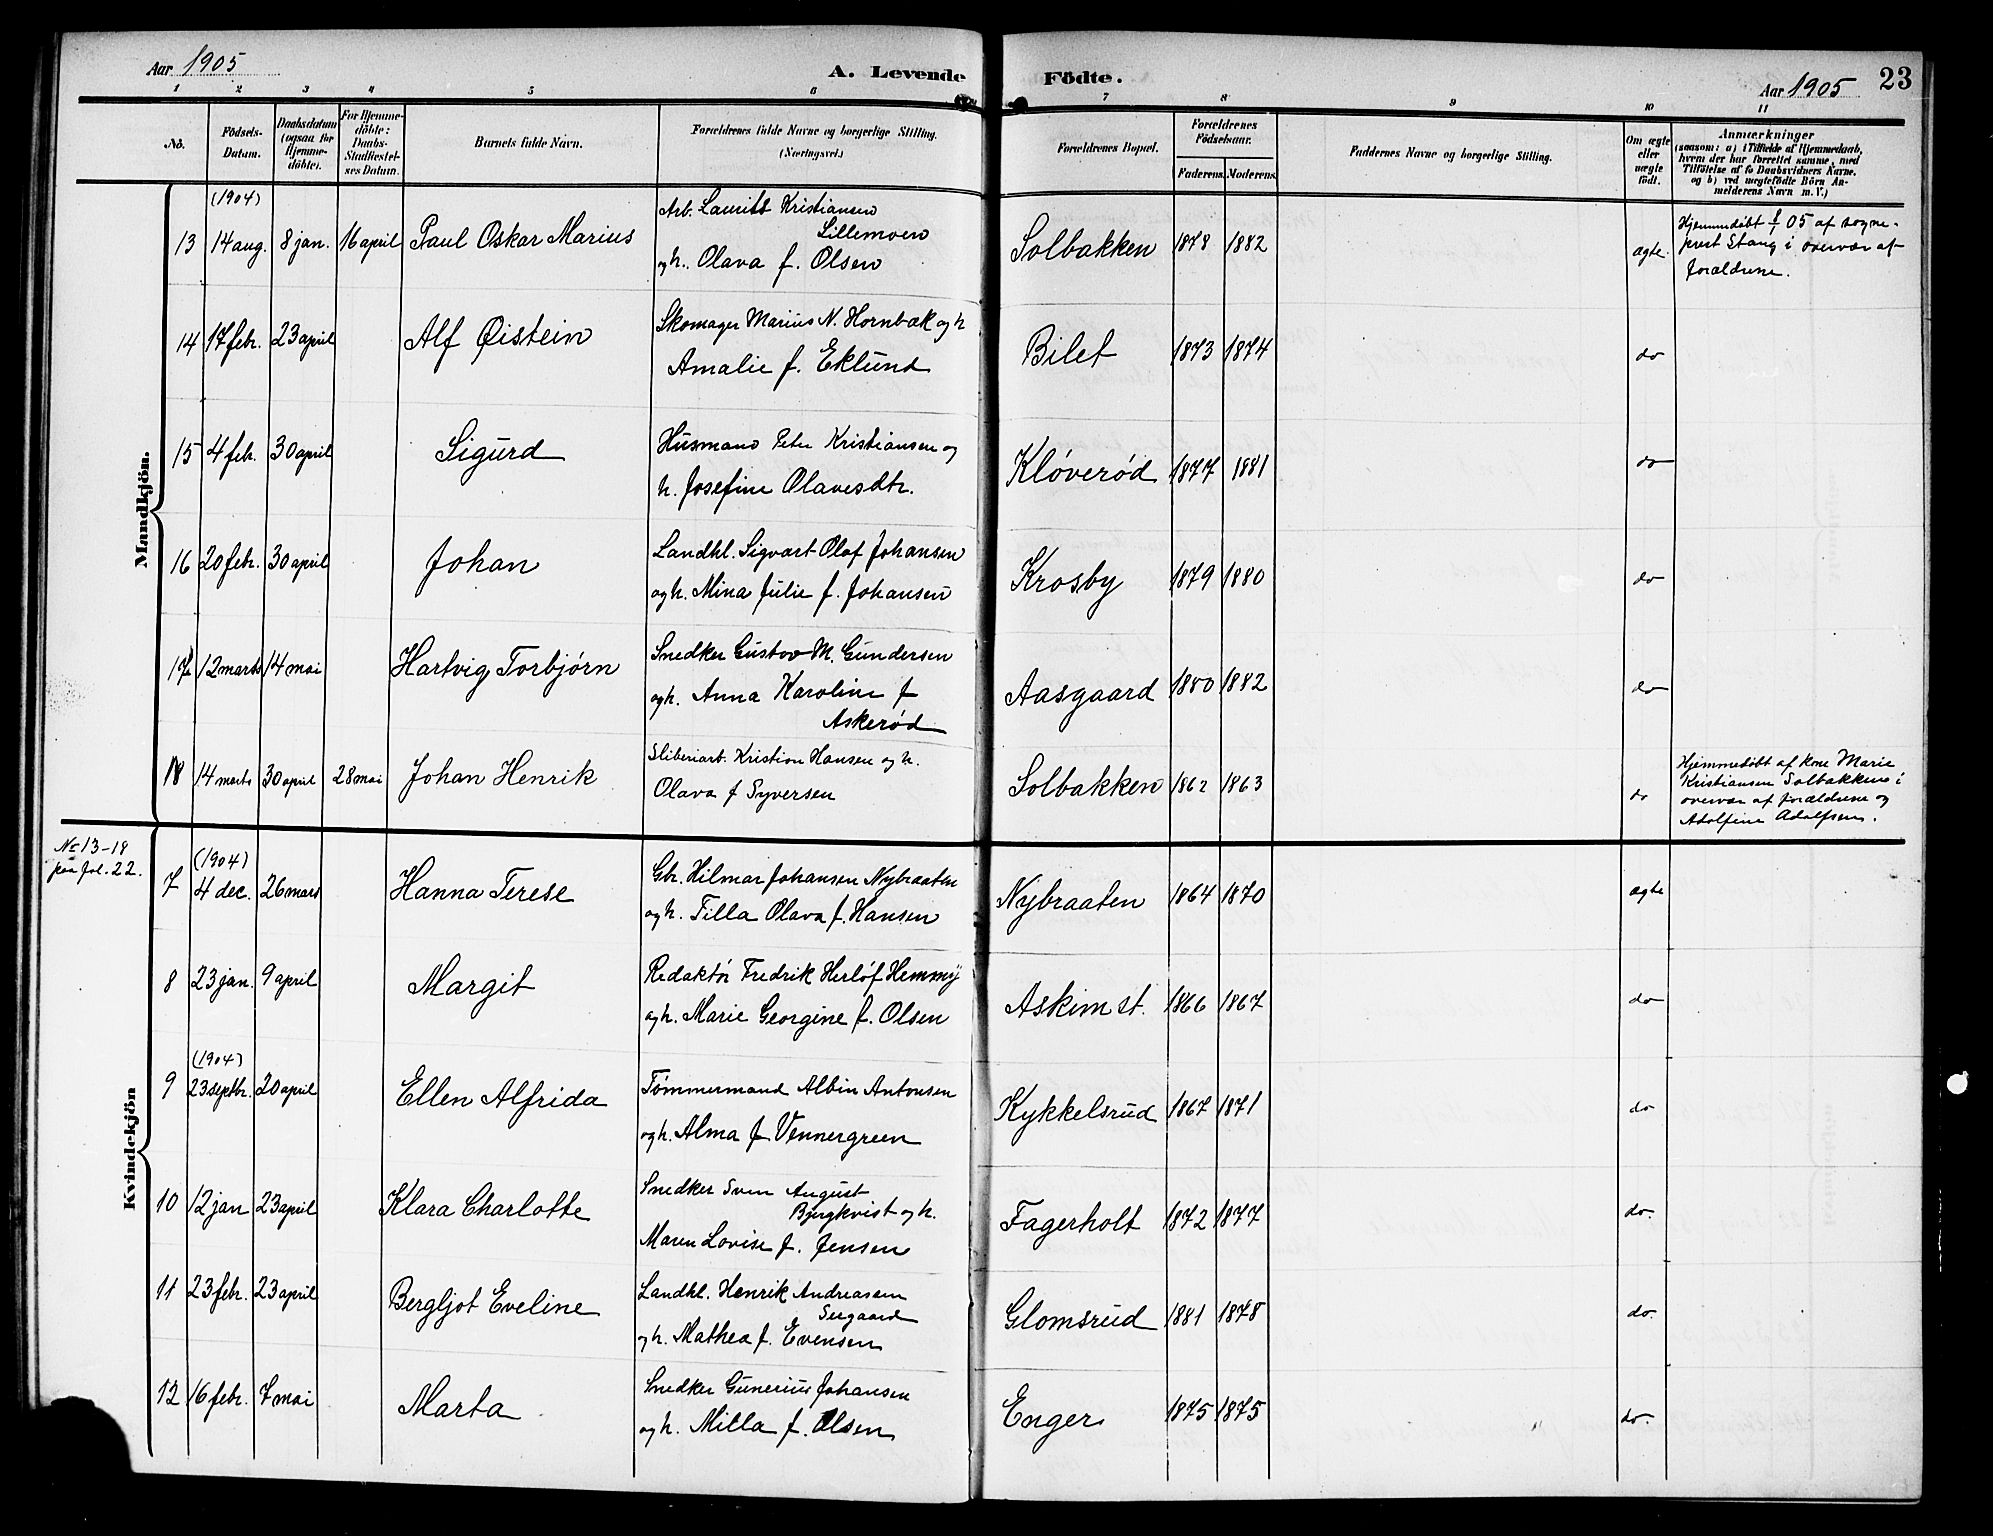 Aar 1905
A. Levende Födte.
Aar 1905
23
1 2 3 4 5 6 7 8 9 10 11
No.
Födsels-
Datum.
Daabsdatum
(ogsaa for
Hjemme-
döbte).
For Hjemme-
döbte:
Daabs-
Stadfæstel-
ses Datum.
Barnets fulde Navn.
Forældrenes fulde Navne og borgerlige Stilling.
(Næringsvei.)
Forældrenes Bopæl.
Forældrenes
Födselsaar.
Faderens. Moderens.
Faddernes Navne og borgerlige Stilling.
Om ægte
eller
uægte
født.
Anmærkninger
(saasom: a) i Tilfælde af Hjemmedaab,
hvem der har forrettet samme, med
Tilföielse af to Daabsvidners Navne.
og b) ved uægtefödte Börn An-
melderens Navn m. V.)
Mandkjön.
(1904)
13 14 aug. 8 jan. 16 april Paul Oskar Marius
Arb. Laurits Kristiansen
Lillemoen
og h. Olava f. Olsen
Solbakken 1878 1882 ægte.
Hjemmedøbt 05 af sogne-
prest Stang i overvær af
forældrene.
14 17 febr. 23 april Alf Øistein
Skomager Marius N. Hornbæk og h
Amalie f. Eklund
Bilet 1873 1874 do
15 4 feb. 30 april Sigurd
Husmand Peter Kristiansen og
h. Josefine Olavesdtr.
Kløverød 1877 1881 do
16 20 febr. 30 april Johan
Landhl. Sigvart Olaf Johansen
og h. Mina Julie f. Johansen
Krosby 1879 1880 do
17 12 marts 14 mai Hartvig Torbjørn
Snedker Gustav M. Gundersen
og h. Anna Karoline f
Askerød
Aasgaard 1880 1882 do
18 14 marts 30 april 28 mai Johan Henrik
Sliberiarb. Kristian Hansen og h.
Olava f Syversen
Solbakken 1862 1863 do
Hjemmedøbt af kone Marie
Kristiansen Solbakken i
overvær af forældrene og
Adolfine Adolfsen.
No 13-18
paa fol. 22.
Kvindekjön
(1904)
7 4 dec. 26 mars Hanna Terese
Gbr. Hilmar Johansen Nybraaten
og h. Tilla Olava f. Hansen
Nybraaten 1864 1870 ægte
8 23 jan. 9 april Margit
Redaktør Fredrik Herlof Hemmy
og h. Marie Georgine f. Olsen
Askim st. 1866 1867 do
(1904)
9 23 septbr. 20 april Ellen Alfrida
Tømmermand Albin Antonsen
og h. Alma f Vennergreen
Kykkelsrud 1867 1871 do
10 12 jan 23 april Klara Charlotte
Snedker Sven August
Bjergkvist og h.
Maren Lovise f. Jensen
Fagerholt 1872 1877 do.
11 23 febr. 23 april Bergljot Eveline
Landhl. Henrik Andreasen
og h. Mathea f. Evensen
Glomsrud 1881 1878 do.
12 16 febr. 7 mai Marta
Snedker Gunerius Johansen
og h. Milla f. Olsen
Enger 1875 1875 do.